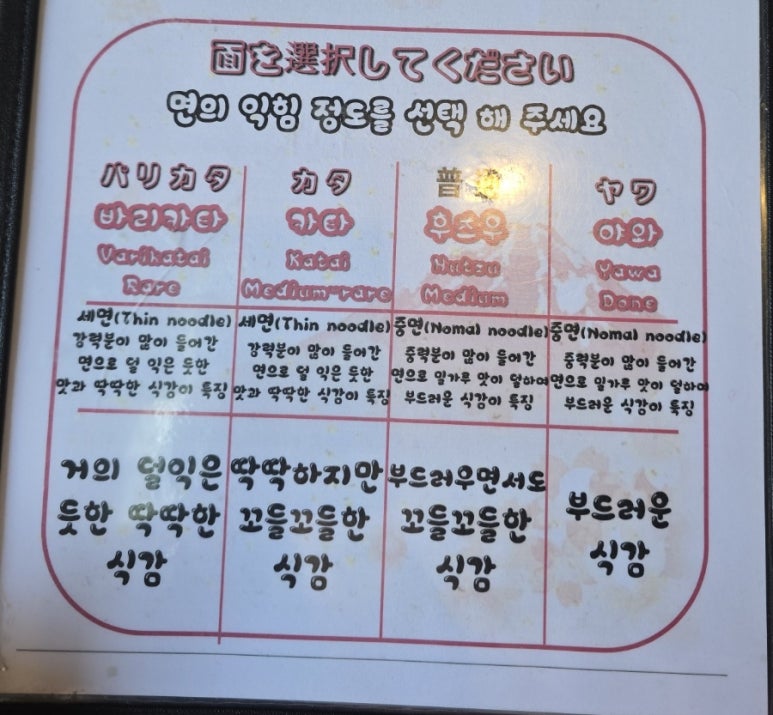 面を選択してください
면의 익힘 정도를 선택 해 주세요
バリカタ
바리카타
Varikatai
Rare
カタ
카타
Katai
Medium-rare
普
후즈우
Hutzu
Medium
ヤワ
야와
Yawa
Done
세면(Thin noodle)
강력분이 많이 들어간
면으로 덜 익은 듯한
맛과 딱딱한 식감이 특징
세면(Thin noodle)
강력분이 많이 들어간
면으로 덜 익은 듯한
맛과 딱딱한 식감이 특징
중면(Nomal noodle)
중력분이 많이 들어간
면으로 밀가루 맛이 덜하며
부드러운 식감이 특징
중면(Nomal noodle)
중력분이 많이 들어간
면으로 밀가루 맛이 덜하며
부드러운 식감이 특징
거의 덜익은
듯한 딱딱한
식감
딱딱하지만
꼬들꼬들한
식감
부드러우면서도
꼬들꼬들한
식감
부드러운
식감